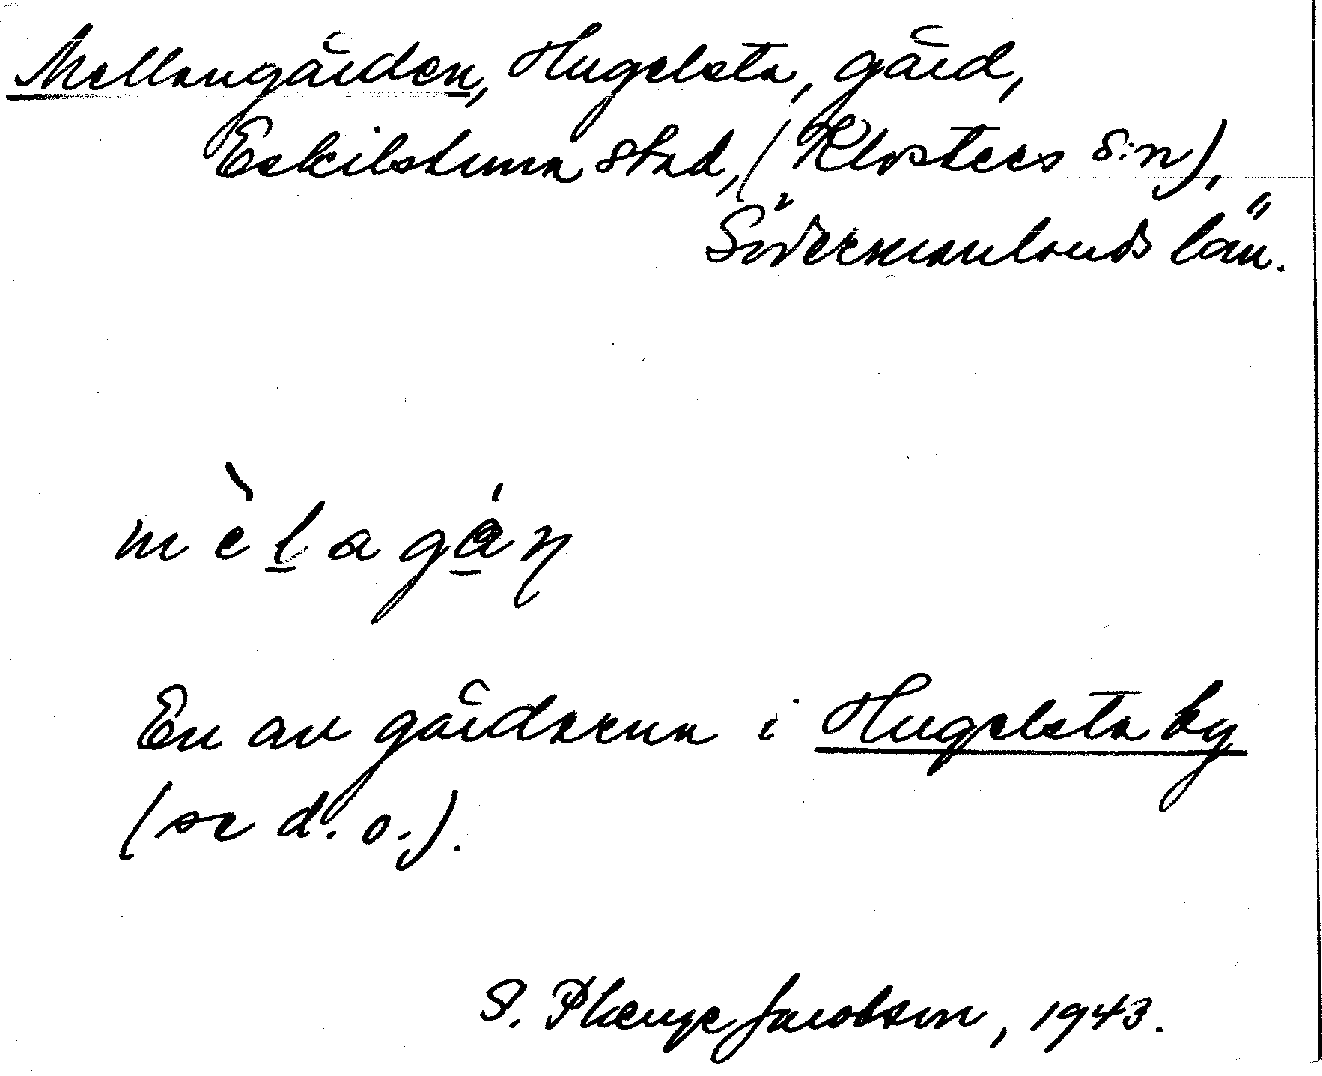 Mellangården, Hugelsta, gård,
Eskilstuna stad, (Klosters s:n),
Södermanlands län.
mèlagá̊n
En av gårdarna i Hugelsta by
(se d. o.).
S. Plenge Jacobson, 1943.